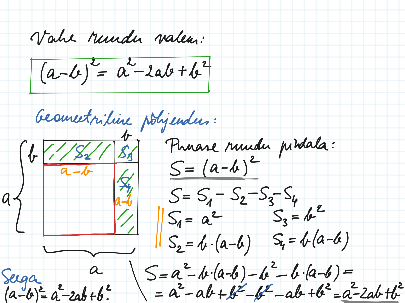 Vahe ruudu valem:
(a-b)² = a² - 2ab + b²
Geomeetriline põhjendus:
b
b S₂ S₃
a-b
a S₄
a-b
a
Punase ruudu pindala:
S = (a-b)²
S = S₁ - S₂ - S₃ - S₄
S₁ = a² S₃ = b²
S₂ = b·(a-b) S₄ = b·(a-b)
Seega
(a-b)² = a² - 2ab + b²
S = a² - b·(a-b) - b² - b·(a-b) =
= a² - ab + b² - b² - ab + b² = a² - 2ab + b²